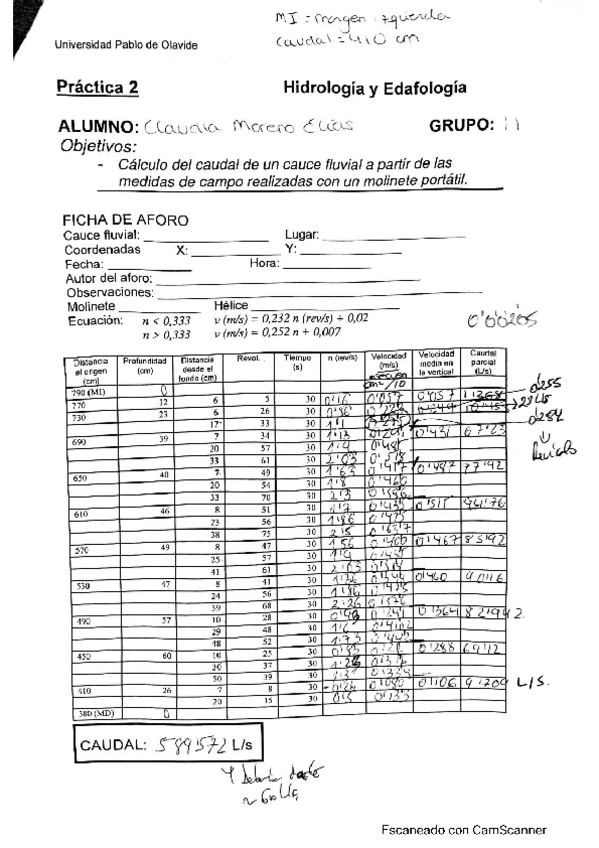 MI = margen izquierda
caudal = 410 cm
Universidad Pablo de Olavide
Práctica 2 Hidrología y Edafología
ALUMNO: Claudia Moreno Elías GRUPO: 11
Objetivos:
- Cálculo del caudal de un cauce fluvial a partir de las
medidas de campo realizadas con un molinete portátil.
FICHA DE AFORO
Cauce fluvial: Lugar:
Coordenadas X: Y:
Fecha: Hora:
Autor del aforo:
Observaciones:
Molinete Hélice
Ecuación: n < 0,333 v (m/s) = 0,232 n (rev/s) + 0,02
n > 0,333 v (m/s) = 0,252 n + 0,007
0'00205
Distancia al origen (cm) Profundidad (cm) Distancia desde el fondo (cm) Revol. Tiempo (s) n (rev/s) Velocidad (m/s) Velocidad media en la vertical Caudal parcial (L/s)
790 (MI) 0
770 12 6 5 30 0'16 0'057 0'057
730 23 6 26 30
17 33 30 1'1
690 39 7 34 30 1'13 0'431 67'23
20 57 30 1'9
33 61 30 2'03 0'518
650 40 7 49 30 1'63 0'417 0'487 77'92
20 54 30 1'8 0'460
33 70 30 2'3
610 46 8 51 30 1'7 0'435 0'515 94'76
23 56 30 1'86 0'475
38 75 30 2'5 0'637
570 49 8 47 30 1'56 0'400 0'467
25 57 30 1'9
41 61 30 2'03
530 47 8 41 30 1'36 0'460 90'16
24 56 30 1'86 0'475
39 68 30 2'26 0'576
490 57 10 28 30 0'93 0'241 0'364 82'992
29 48 30 1'6
48 52 30 1'73 0'443
450 60 10 25 30 0'83 0'288 69'12
30 37 30 1'23
50 39 30 1'3 0'334
410 26 7 8 30 0'26 0'080 0'106 9'704 L/S.
20 15 30 0'5 0'133
380 (MD) 0
CAUDAL: 589'572 L/s
Escaneado con CamScanner